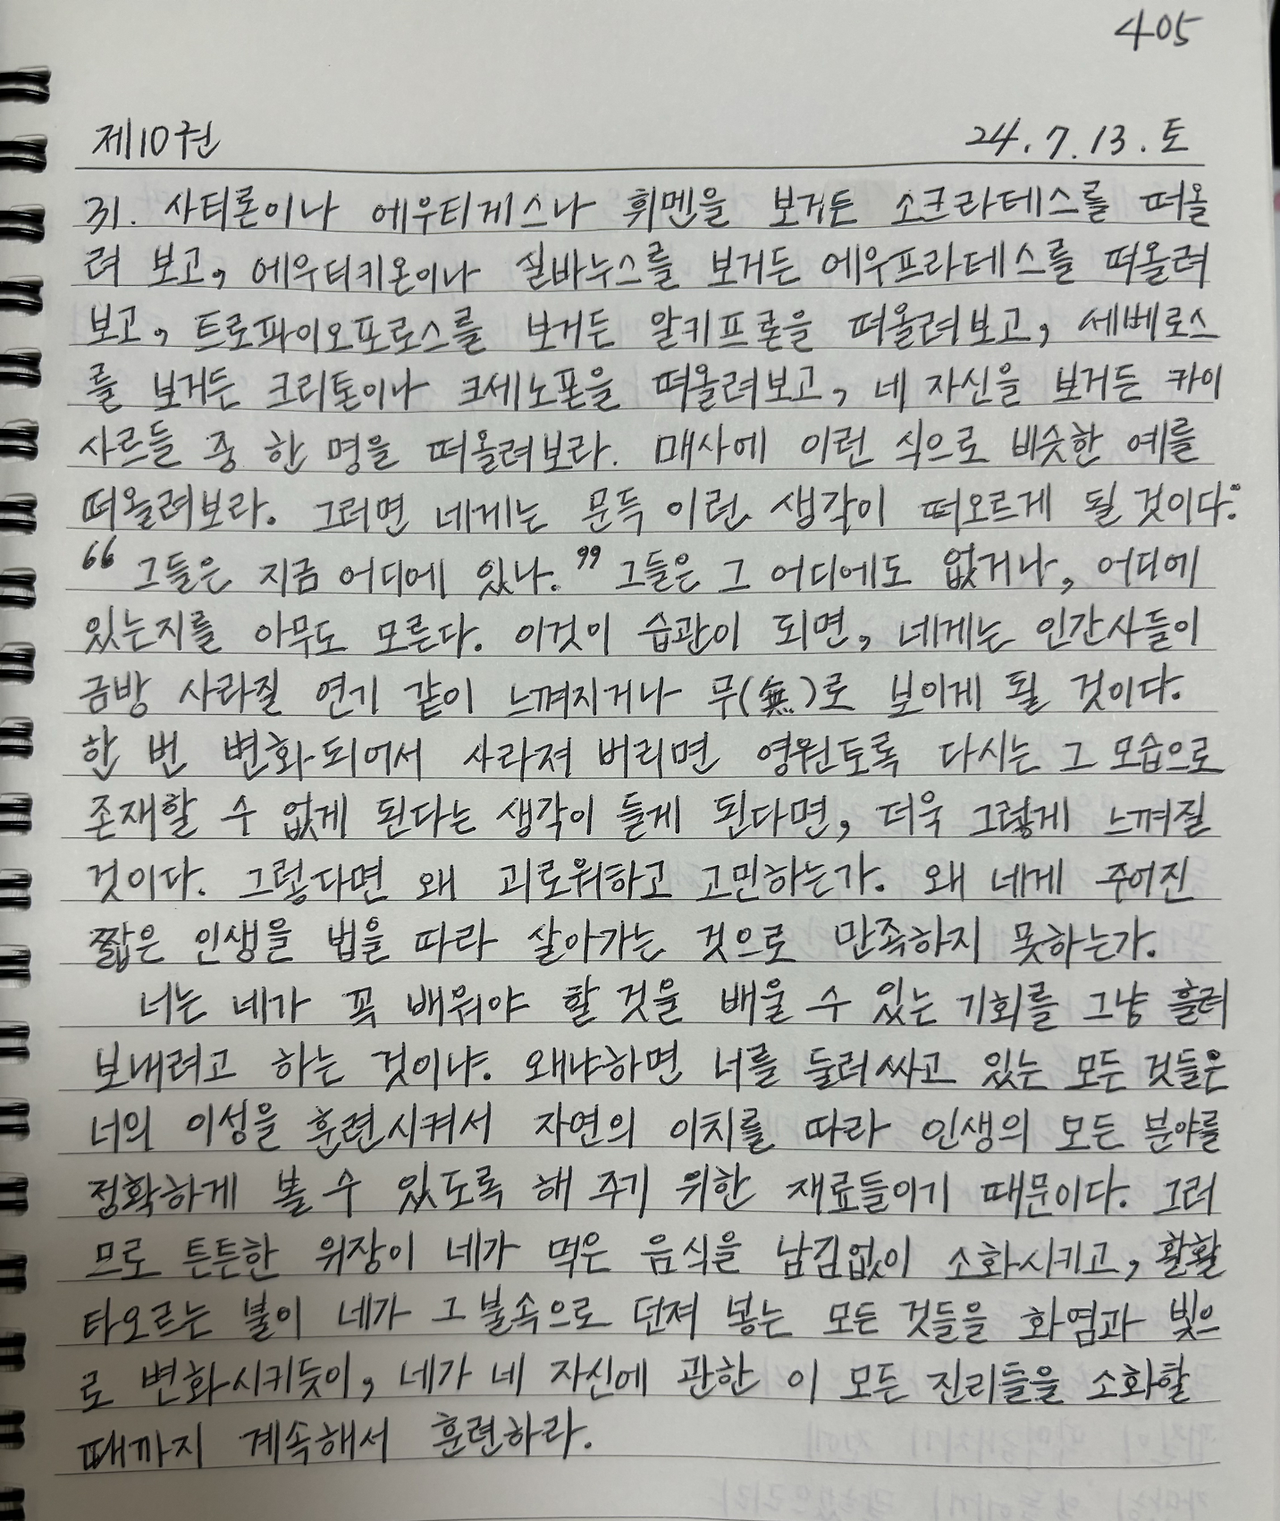 405
제10권 24.7.13.토
31. 사티론이나 에우티케스나 휘멘을 보거든 소크라테스를 떠올
려 보고, 에우티키온이나 실바누스를 보거든 에우프라테스를 떠올려
보고, 트로파이오포로스를 보거든 알키프론을 떠올려보고, 세베로스
를 보거든 크리톤이나 크세노폰을 떠올려보고, 네 자신을 보거든 카이
사르들 중 한 명을 떠올려보라. 매사에 이런 식으로 비슷한 예를
떠올려보라. 그러면 네게는 문득 이런 생각이 떠오르게 될 것이다:
“그들은 지금 어디에 있나.” 그들은 그 어디에도 없거나, 어디에
있는지를 아무도 모른다. 이것이 습관이 되면, 네게는 인간사들이
금방 사라질 연기 같이 느껴지거나 무(無)로 보이게 될 것이다.
한 번 변화되어서 사라져 버리면 영원토록 다시는 그 모습으로
존재할 수 없게 된다는 생각이 들게 된다면, 더욱 그렇게 느껴질
것이다. 그렇다면 왜 괴로워하고 고민하는가. 왜 네게 주어진
짧은 인생을 법을 따라 살아가는 것으로 만족하지 못하는가.
너는 네가 꼭 배워야 할 것을 배울 수 있는 기회를 그냥 흘려
보내려고 하는 것이냐. 왜냐하면 너를 둘러싸고 있는 모든 것들은
너의 이성을 훈련시켜서 자연의 이치를 따라 인생의 모든 분야를
정확하게 볼 수 있도록 해 주기 위한 재료들이기 때문이다. 그러
므로 튼튼한 위장이 네가 먹은 음식을 남김없이 소화시키고, 활활
타오르는 불이 네가 그 불속으로 던져 넣는 모든 것들을 화염과 빛으
로 변화시키듯이, 네가 네 자신에 관한 이 모든 진리들을 소화할
때까지 계속해서 훈련하라.